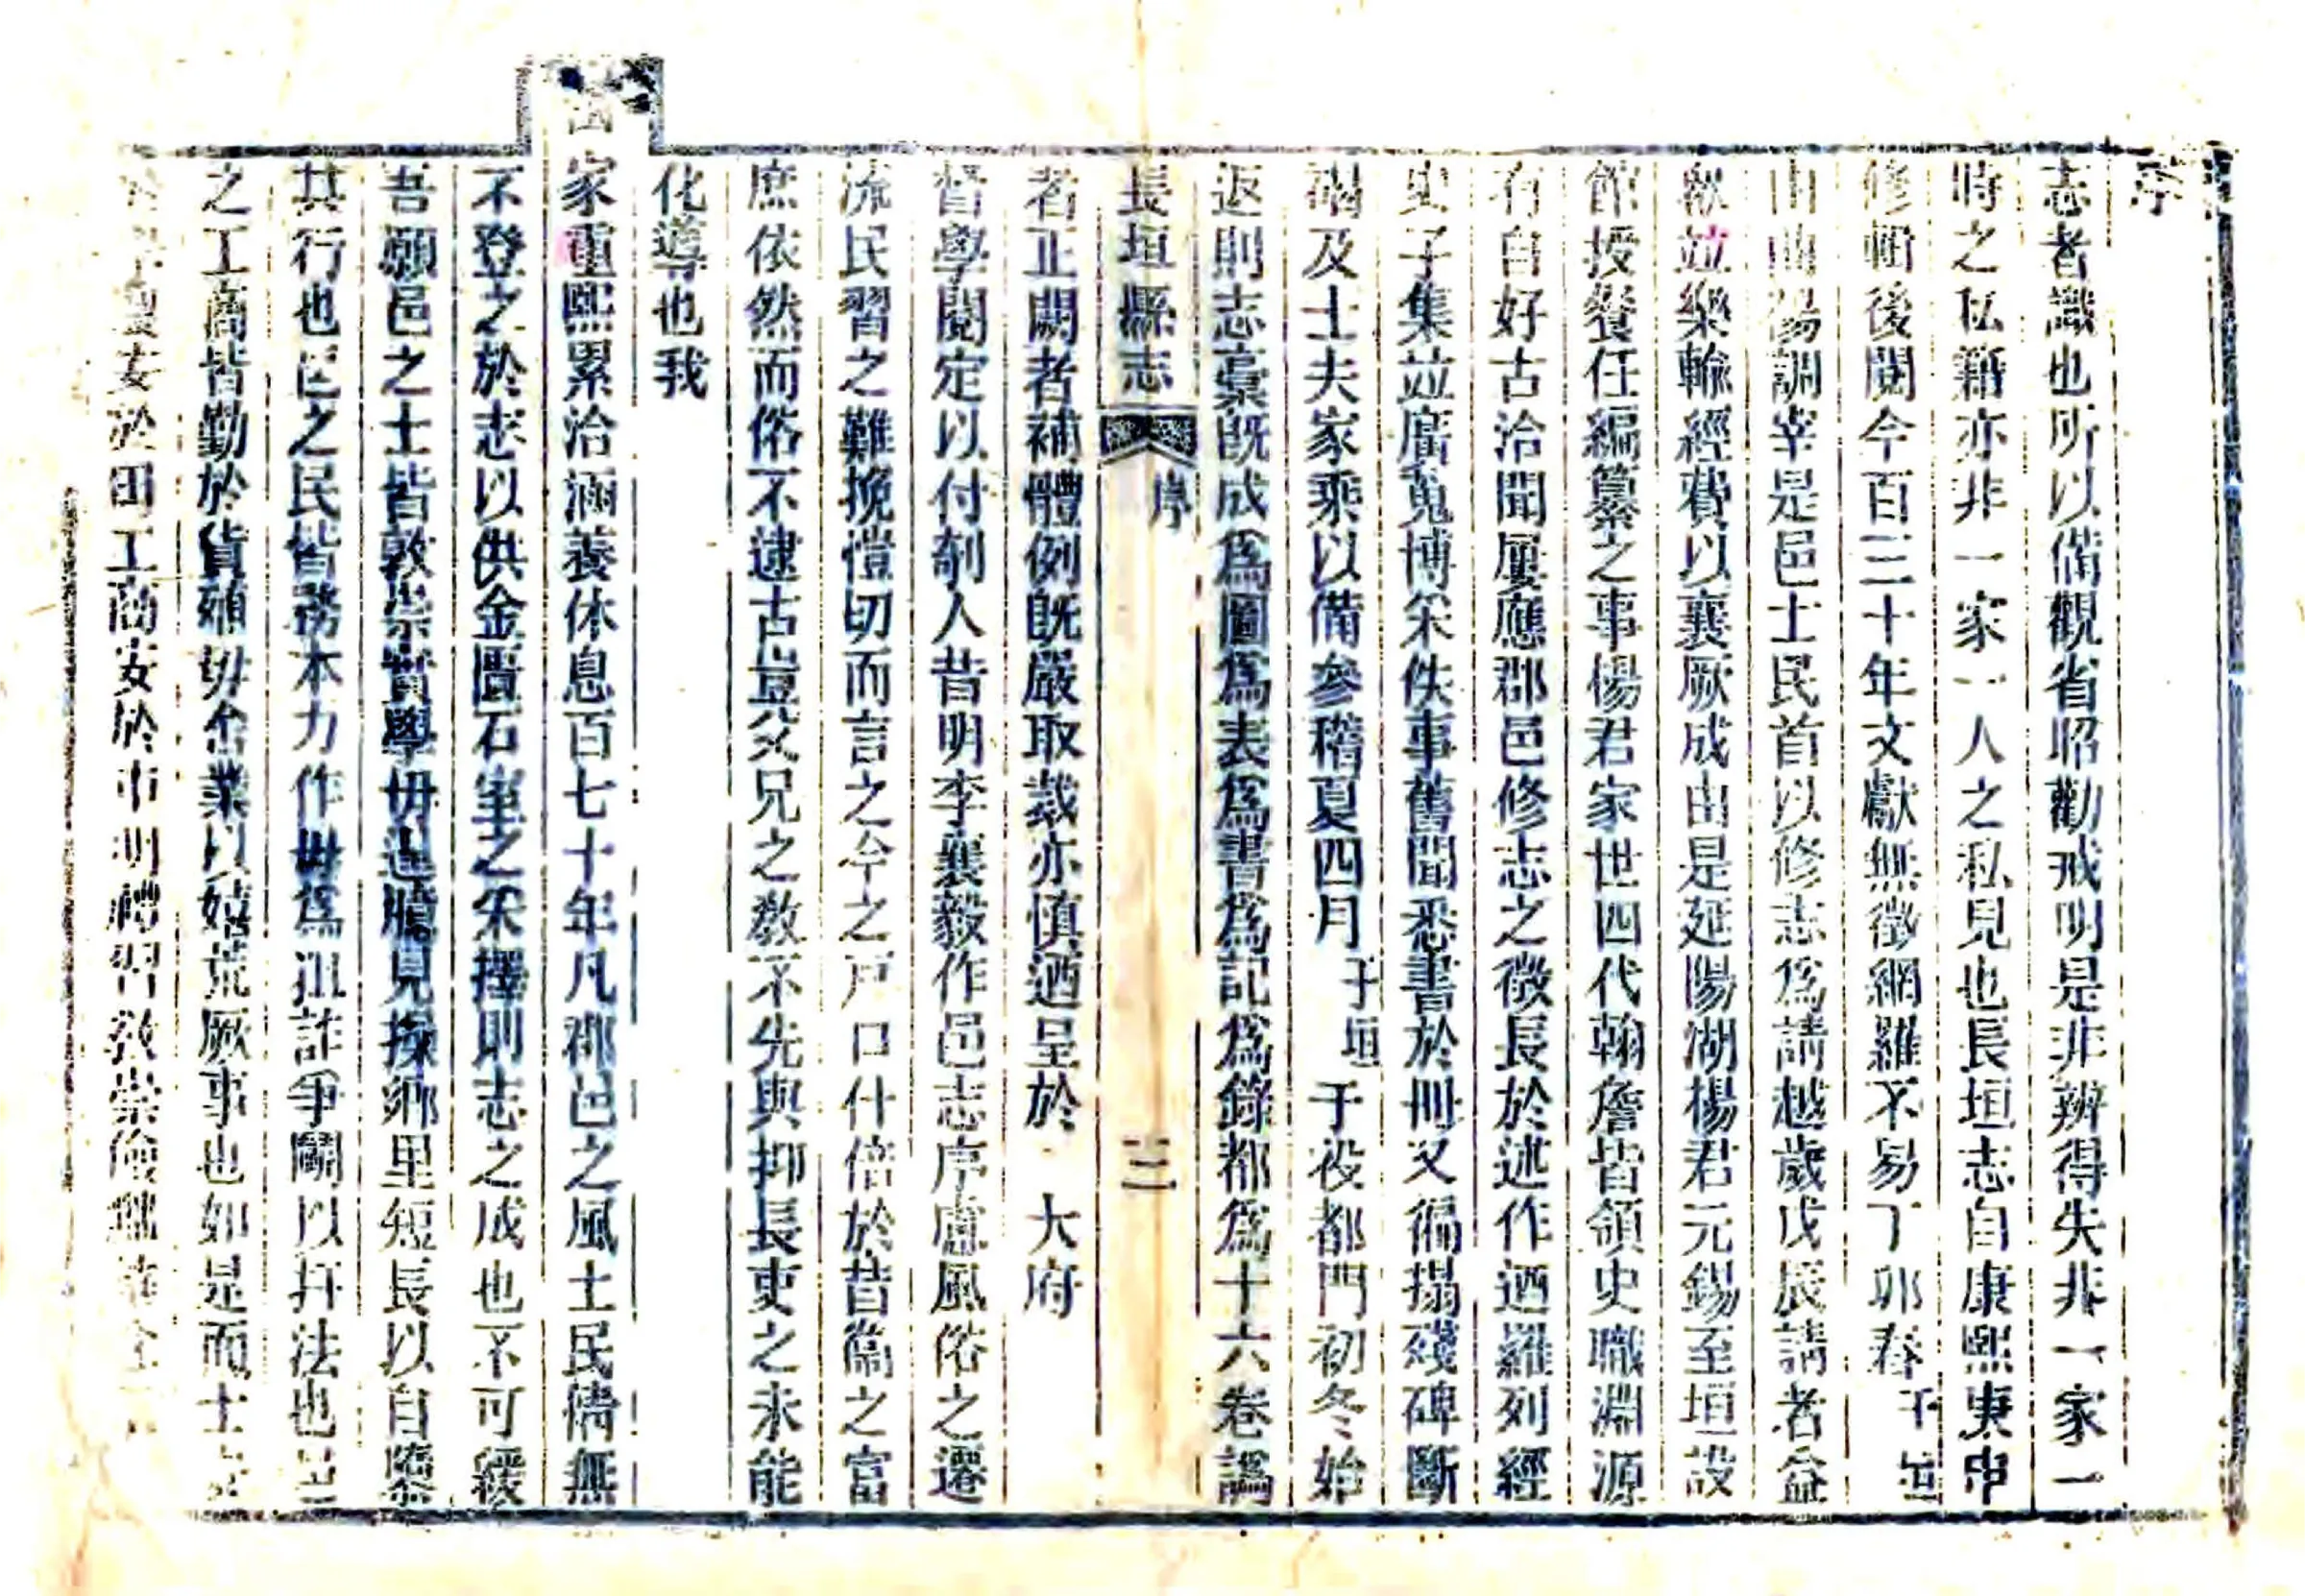 序
志者識也所以備觀省昭勸戒明是非辨得失非一家一
時之私籍亦非一家一人之私見也長垣志自康熙庚申
修輯後閱今百三十年文獻無徵網羅不易丁卯春于垣
由曲陽調宰是邑士民首以修志為請越歲戊辰請者益
衆竝樂輸經費以襄厥成由是延陽湖楊君元錫至垣設
館授餐任編纂之事楊君家世四代翰詹皆領史職淵源
有自好古洽聞屢應郡邑修志之徵長於述作迺羅列經
史子集竝廣蒐博采佚事舊聞悉書於冊又徧搨殘碑斷
碣及士夫家乘以備參稽夏四月于垣于役都門初冬始
返則志稾旣成為圖為表為書為記為錄都為十六卷譌
長垣縣志
序
三
者正闕者補體例旣嚴取裁亦慎迺呈於 大府
督學閱定以付剞人昔明李襄毅作邑志序慮風俗之遷
流民習之難挽愷切而言之今之戸口什倍於昔篇之富
庶依然而俗不逮古豈父兄之教不先與抑長吏之未能
化導也我
國家重熙累洽涵養休息百七十年凡郡邑之風土民情無
不登之於志以供金匱石室之采擇則志之成也不可緩
吾願邑之士皆敦崇實學毋逞臆見操鄉里短長以自隳
其行也邑之民皆務本力作毋為狙詐爭鬭以扞法也邑
之工商皆勤於貨殖毋舍業以嬉荒厥事也如是而士
安於田工商安於市明禮習教崇儉